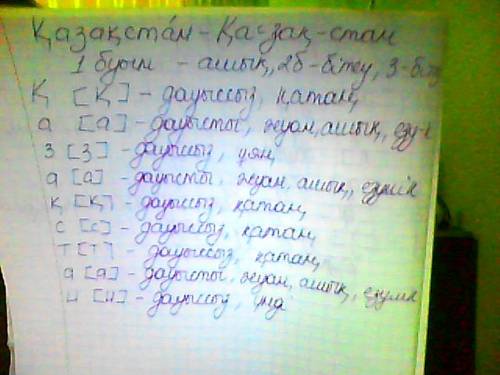 Қазақста́н - Қа-зақ-стан
1 буын - ашық, 2б - бітеу, 3-бітеу
Қ [Қ] - дауыссыз, қатаң,
а [а] - дауысты, жуан, ашық, езу-к
З [З] - дауыссыз, ұяң,
а [а] - дауысты, жуан, ашық, езулік
қ [қ] - дауыссыз, қатаң,
с [с] - дауыссыз, қатаң,
т [т] - дауыссыз, қатаң,
а [а] - дауысты, жуан, ашық, езулік
н [н] - дауыссыз, үнді